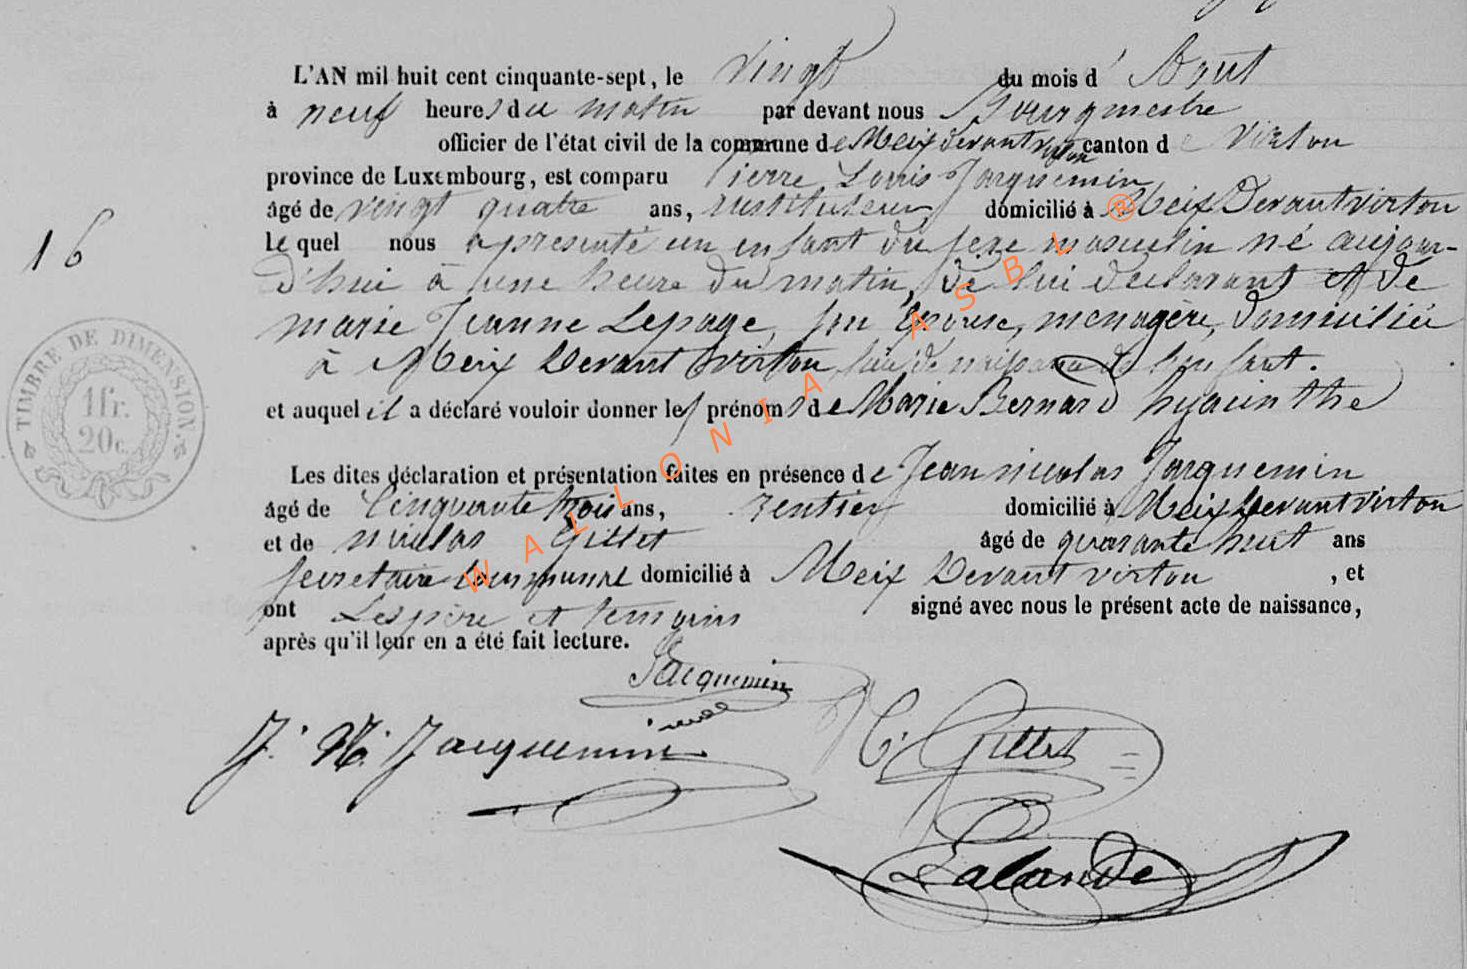 L'AN mil huit cent cinquante-sept, le vingt du mois d' Aout
à neuf heures du matin par devant nous Bourgmestre
officier de l'état civil de la commune de Meix devant virton canton de virton
province de Luxembourg, est comparu Pierre Louis Jacquemin
âgé de vingt quatre ans, instituteur, domicilié à Meix Devant virton
le quel nous a presenté un enfant du sexe masculin né aujour-
d'hui à une heure du matin, de lui declarant et de
marie Jeanne Lepage, son epouse, menagère, domiciliée
à Meix Devant virton, lieu de naissance de l'enfant.
et auquel il a déclaré vouloir donner les prénoms de Marie Bernard hyacinthe
16
TIMBRE DE DIMENSION.
1fr.
20c.
Les dites déclaration et présentation faites en présence de Jean nicolas Jacquemin
âgé de Cinquante trois ans, rentier domicilié à Meix Devant virton
et de nicolas Gillet âgé de quarante huit ans
secretaire communal domicilié à Meix Devant virton , et
ont Les père et temoins signé avec nous le présent acte de naissance,
après qu'il leur en a été fait lecture.
Jacquemin
J. N. Jacquemin
N. Gillet
Lalande
WALLONIA ASBL ®